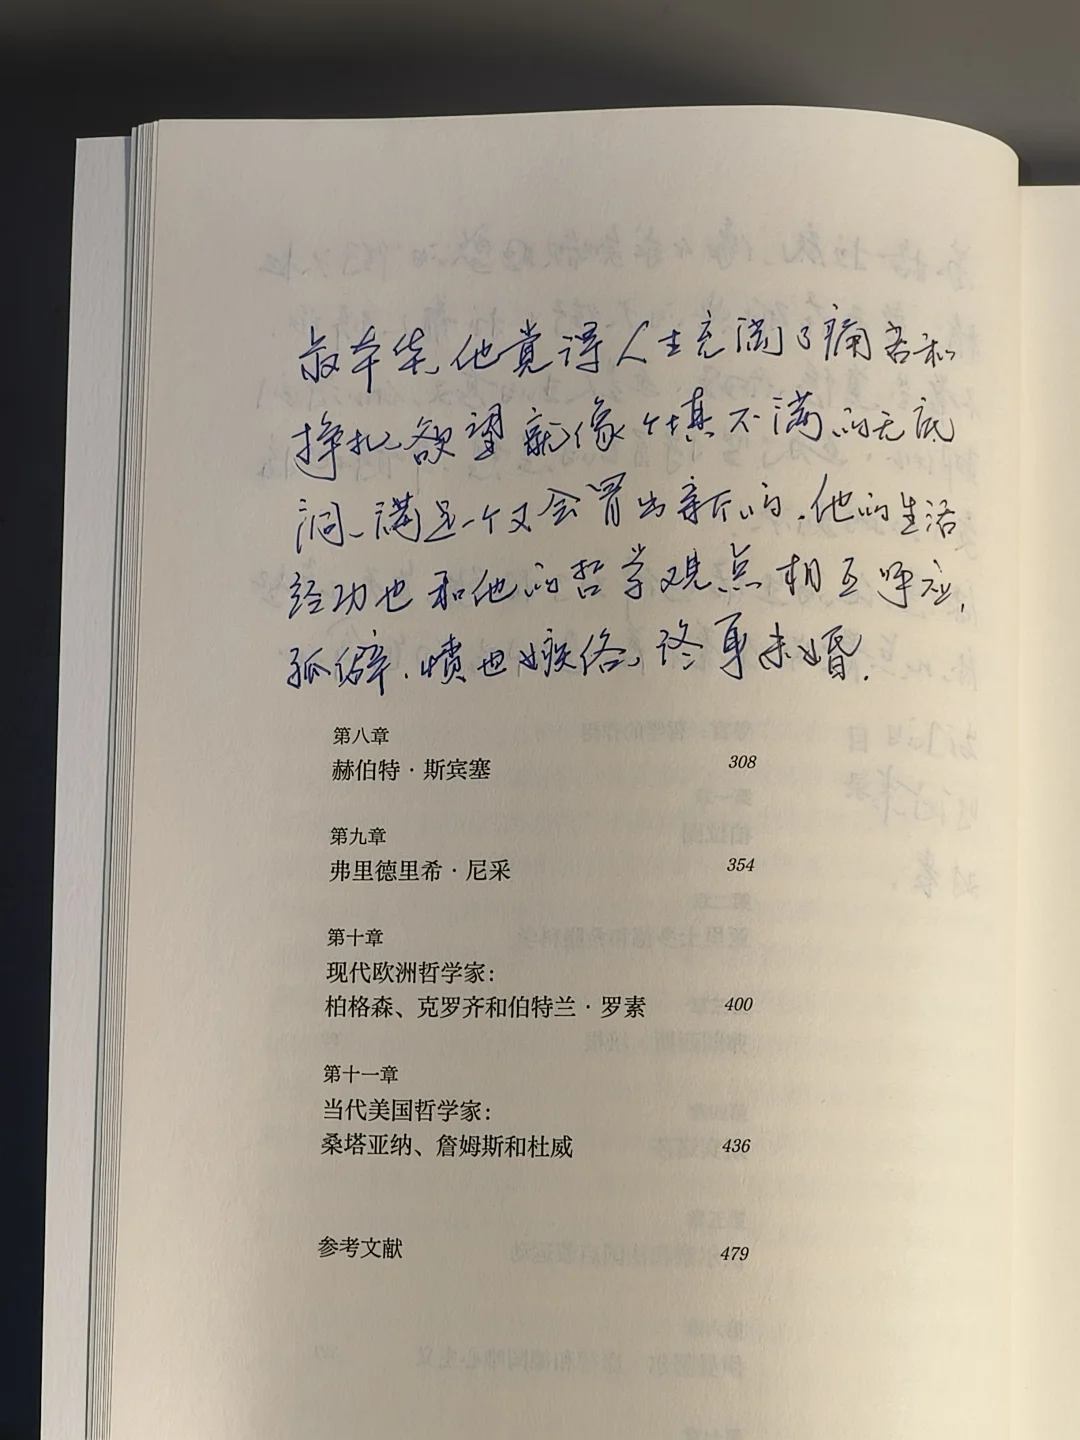 叔本华,他觉得人生充满了痛苦和
挣扎,欲望就像个填不满的无底
洞、满足一个又会冒出新的.他的生活
经功也和他的哲学观点相互呼应,
孤僻.愤世嫉俗,终身未婚.
第八章
赫伯特·斯宾塞 308
第九章
弗里德里希·尼采 354
第十章
现代欧洲哲学家:
柏格森、克罗齐和伯特兰·罗素 400
第十一章
当代美国哲学家:
桑塔亚纳、詹姆斯和杜威 436
参考文献 479